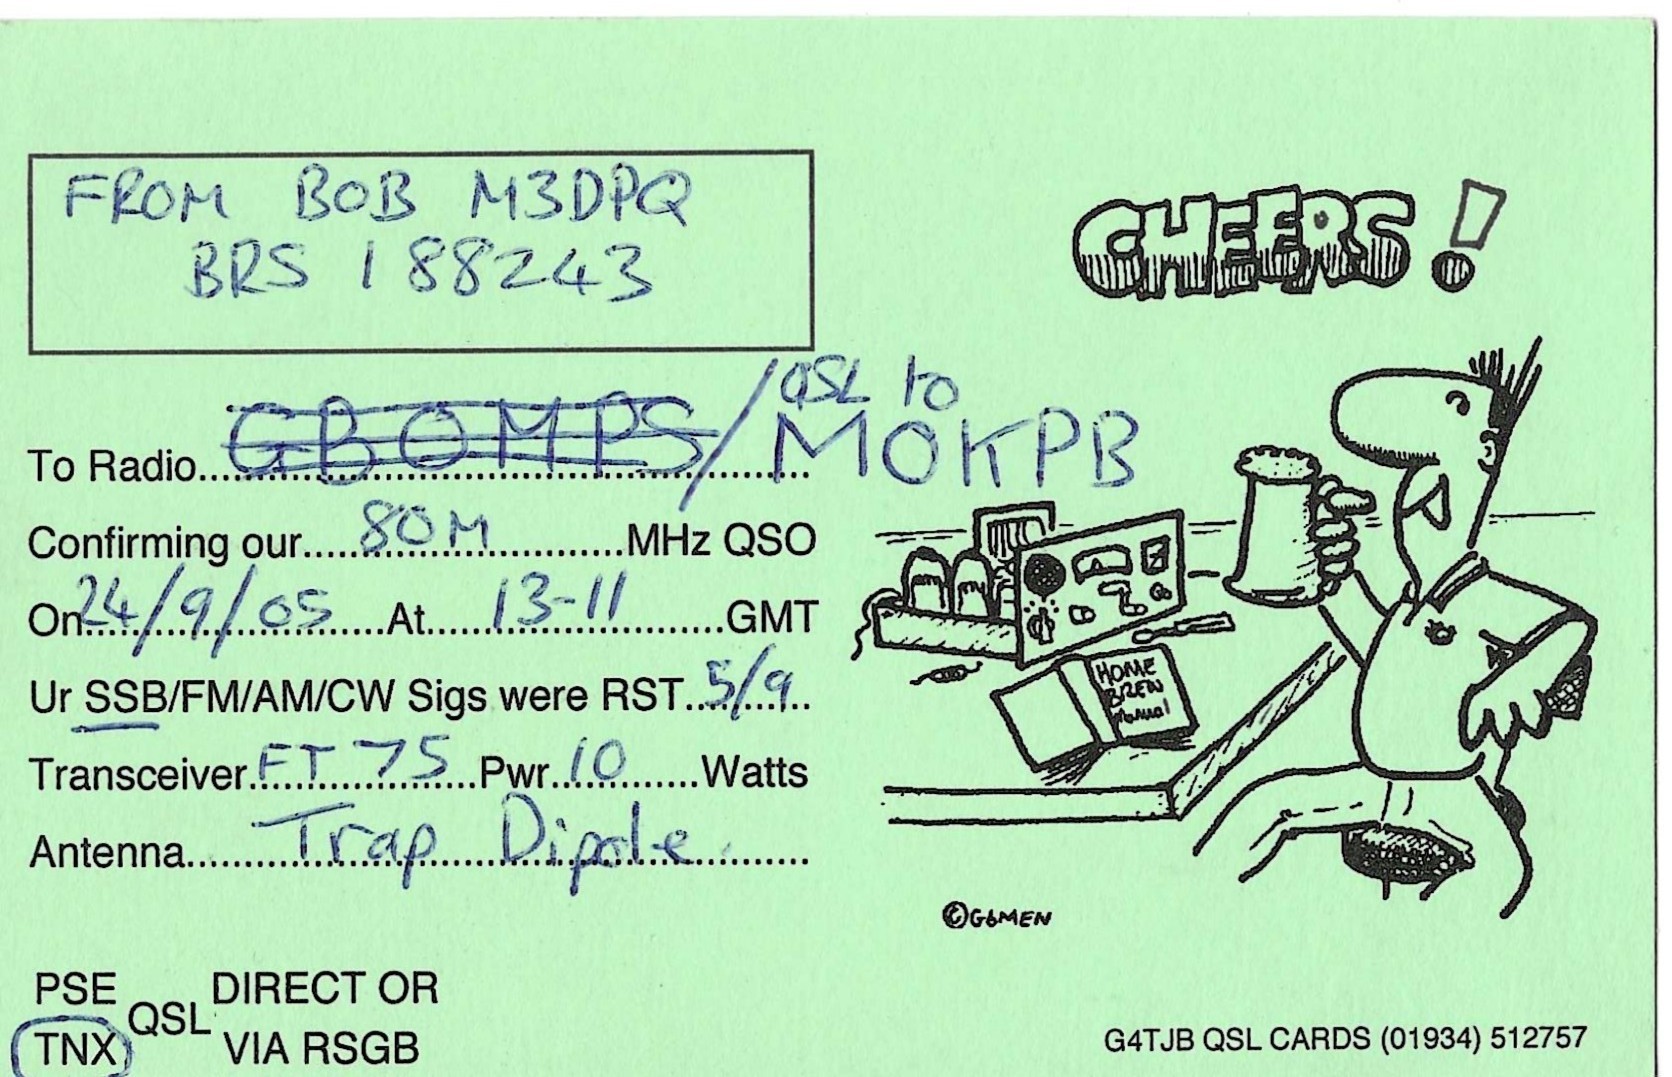 FROM BOB M3DPQ
BRS 188243
CHEERS!
QSL to
To Radio GB0MPS / M0KPB
Confirming our 80M MHz QSO
On 24/9/05 At 13-11 GMT
Ur SSB/FM/AM/CW Sigs were RST 5/9
Transceiver FT 75 Pwr 10 Watts
Antenna Trap Dipole
HOME
BREW
Manual
©G6MEN
PSE QSL DIRECT OR
TNX VIA RSGB
G4TJB QSL CARDS (01934) 512757